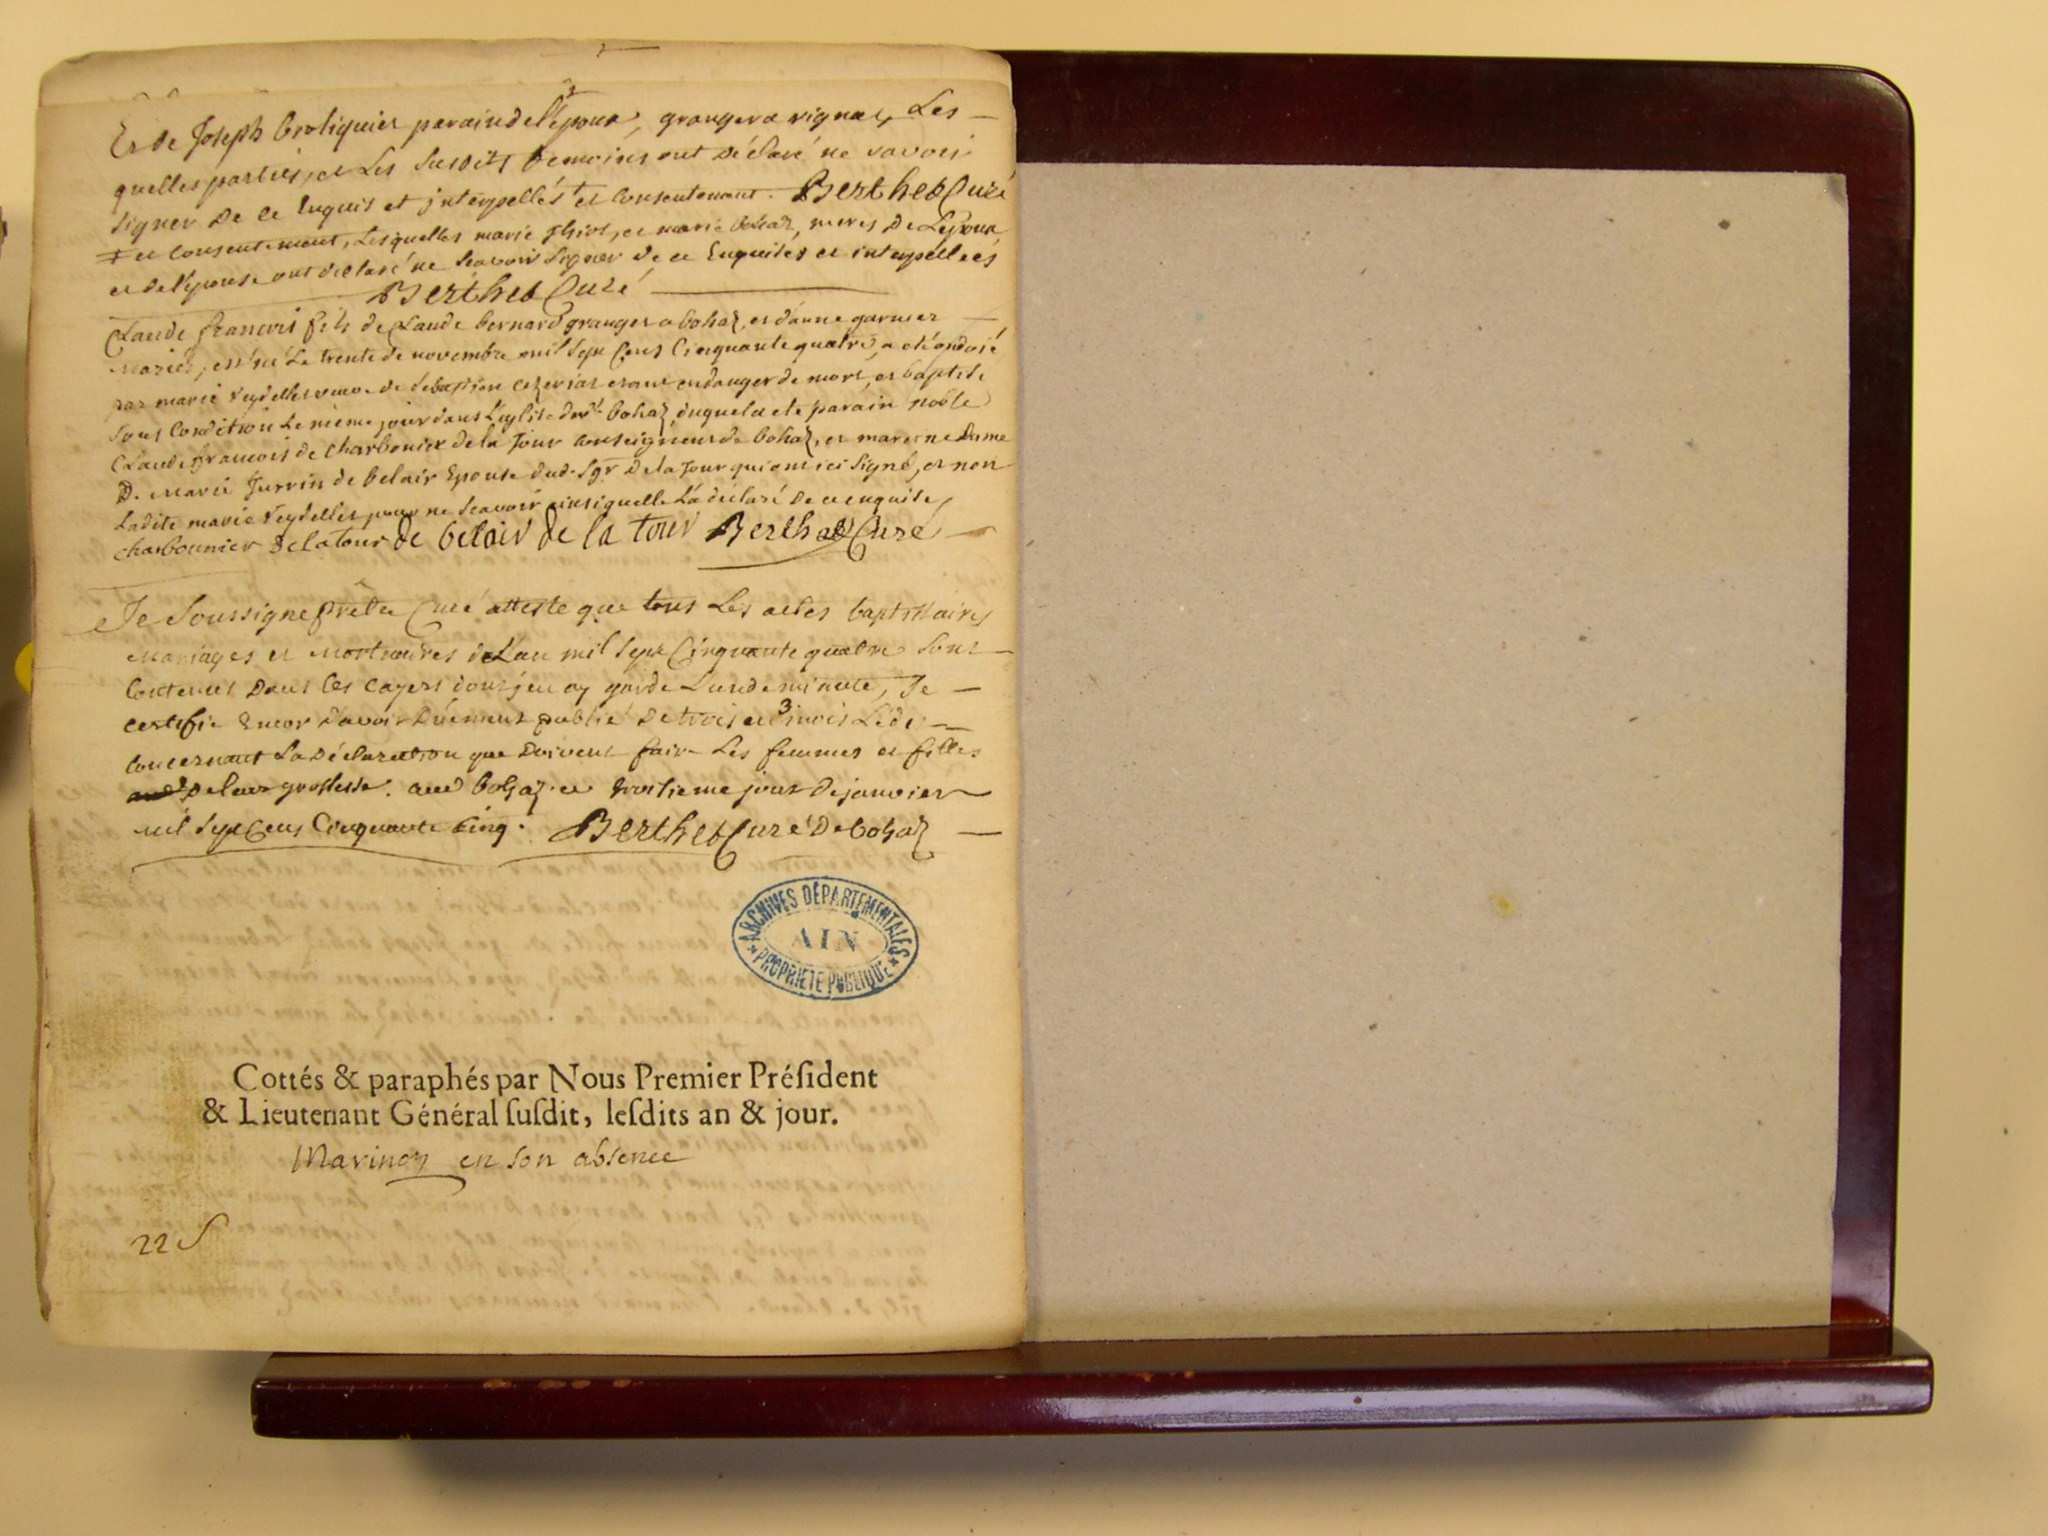 Et de Joseph Croliquier parain de l'époux, granger a vignes, Les
quelles parties, et Les Susdits temoins ont déclaré ne savoir
signer de ce Enquis et jnterpellés et consentement. Berthet Curé
‡ et consentement, Lesquelles marie et marie bohaz, meres de Lepoux
et de l'épouse ont déclaré ne Scavoir Signer de ce Enquises et interpellées
Berthet Curé
Claude francois fils de Claude bernard granger a bohaz, et d'anne garnier
mariés, est né Le trente de novembre mil Sept Cens Cinquante quatre, a eté ondoié
par marie veydelles veuve de Sebastien cezeriat etant en danger de mort, et baptisé
sous Condition Le méme jour dans L'eglise dud. bohaz duquel a eté parain noble
Claude francois de Charbonier de la Tour conseigneur de bohaz, et mareine Dame
D. marie de belair Epouse dud. Sgr. De la Tour qui ont ici Signé, et non
Ladite marie veydelles pour ne Scavoir ainsi quelle L'a déclaré De ce enquise,
charbonnier De la tour de belair de la tour Berthet Curé
Je Soussigné prêtre Curé atteste que tous Les actes baptistaires
Mariages et Mortuaires de L'an mil Sept Cinquante quatre Sont
Contenus Dans les cayers dont j'en ay gardé L'un de minute, Je
certifie Encor d'avoir Dûement publié De trois en 3 mois L'édi
Concernant La Déclaration que Doivent faire Les femmes et filles
De leur grossesse. aud bohaz ce troisieme jour De janvier
mil Sept Cens Cinquante Cinq. Berthet Curé De bohaz
ARCHIVES DÉPARTEMENTALES
AIN
PROPRIÉTÉ PUBLIQUE
Cottés & paraphés par Nous Premier Préſident
& Lieutenant Général ſuſdit, leſdits an & jour.
Marinon en son absence
22 S